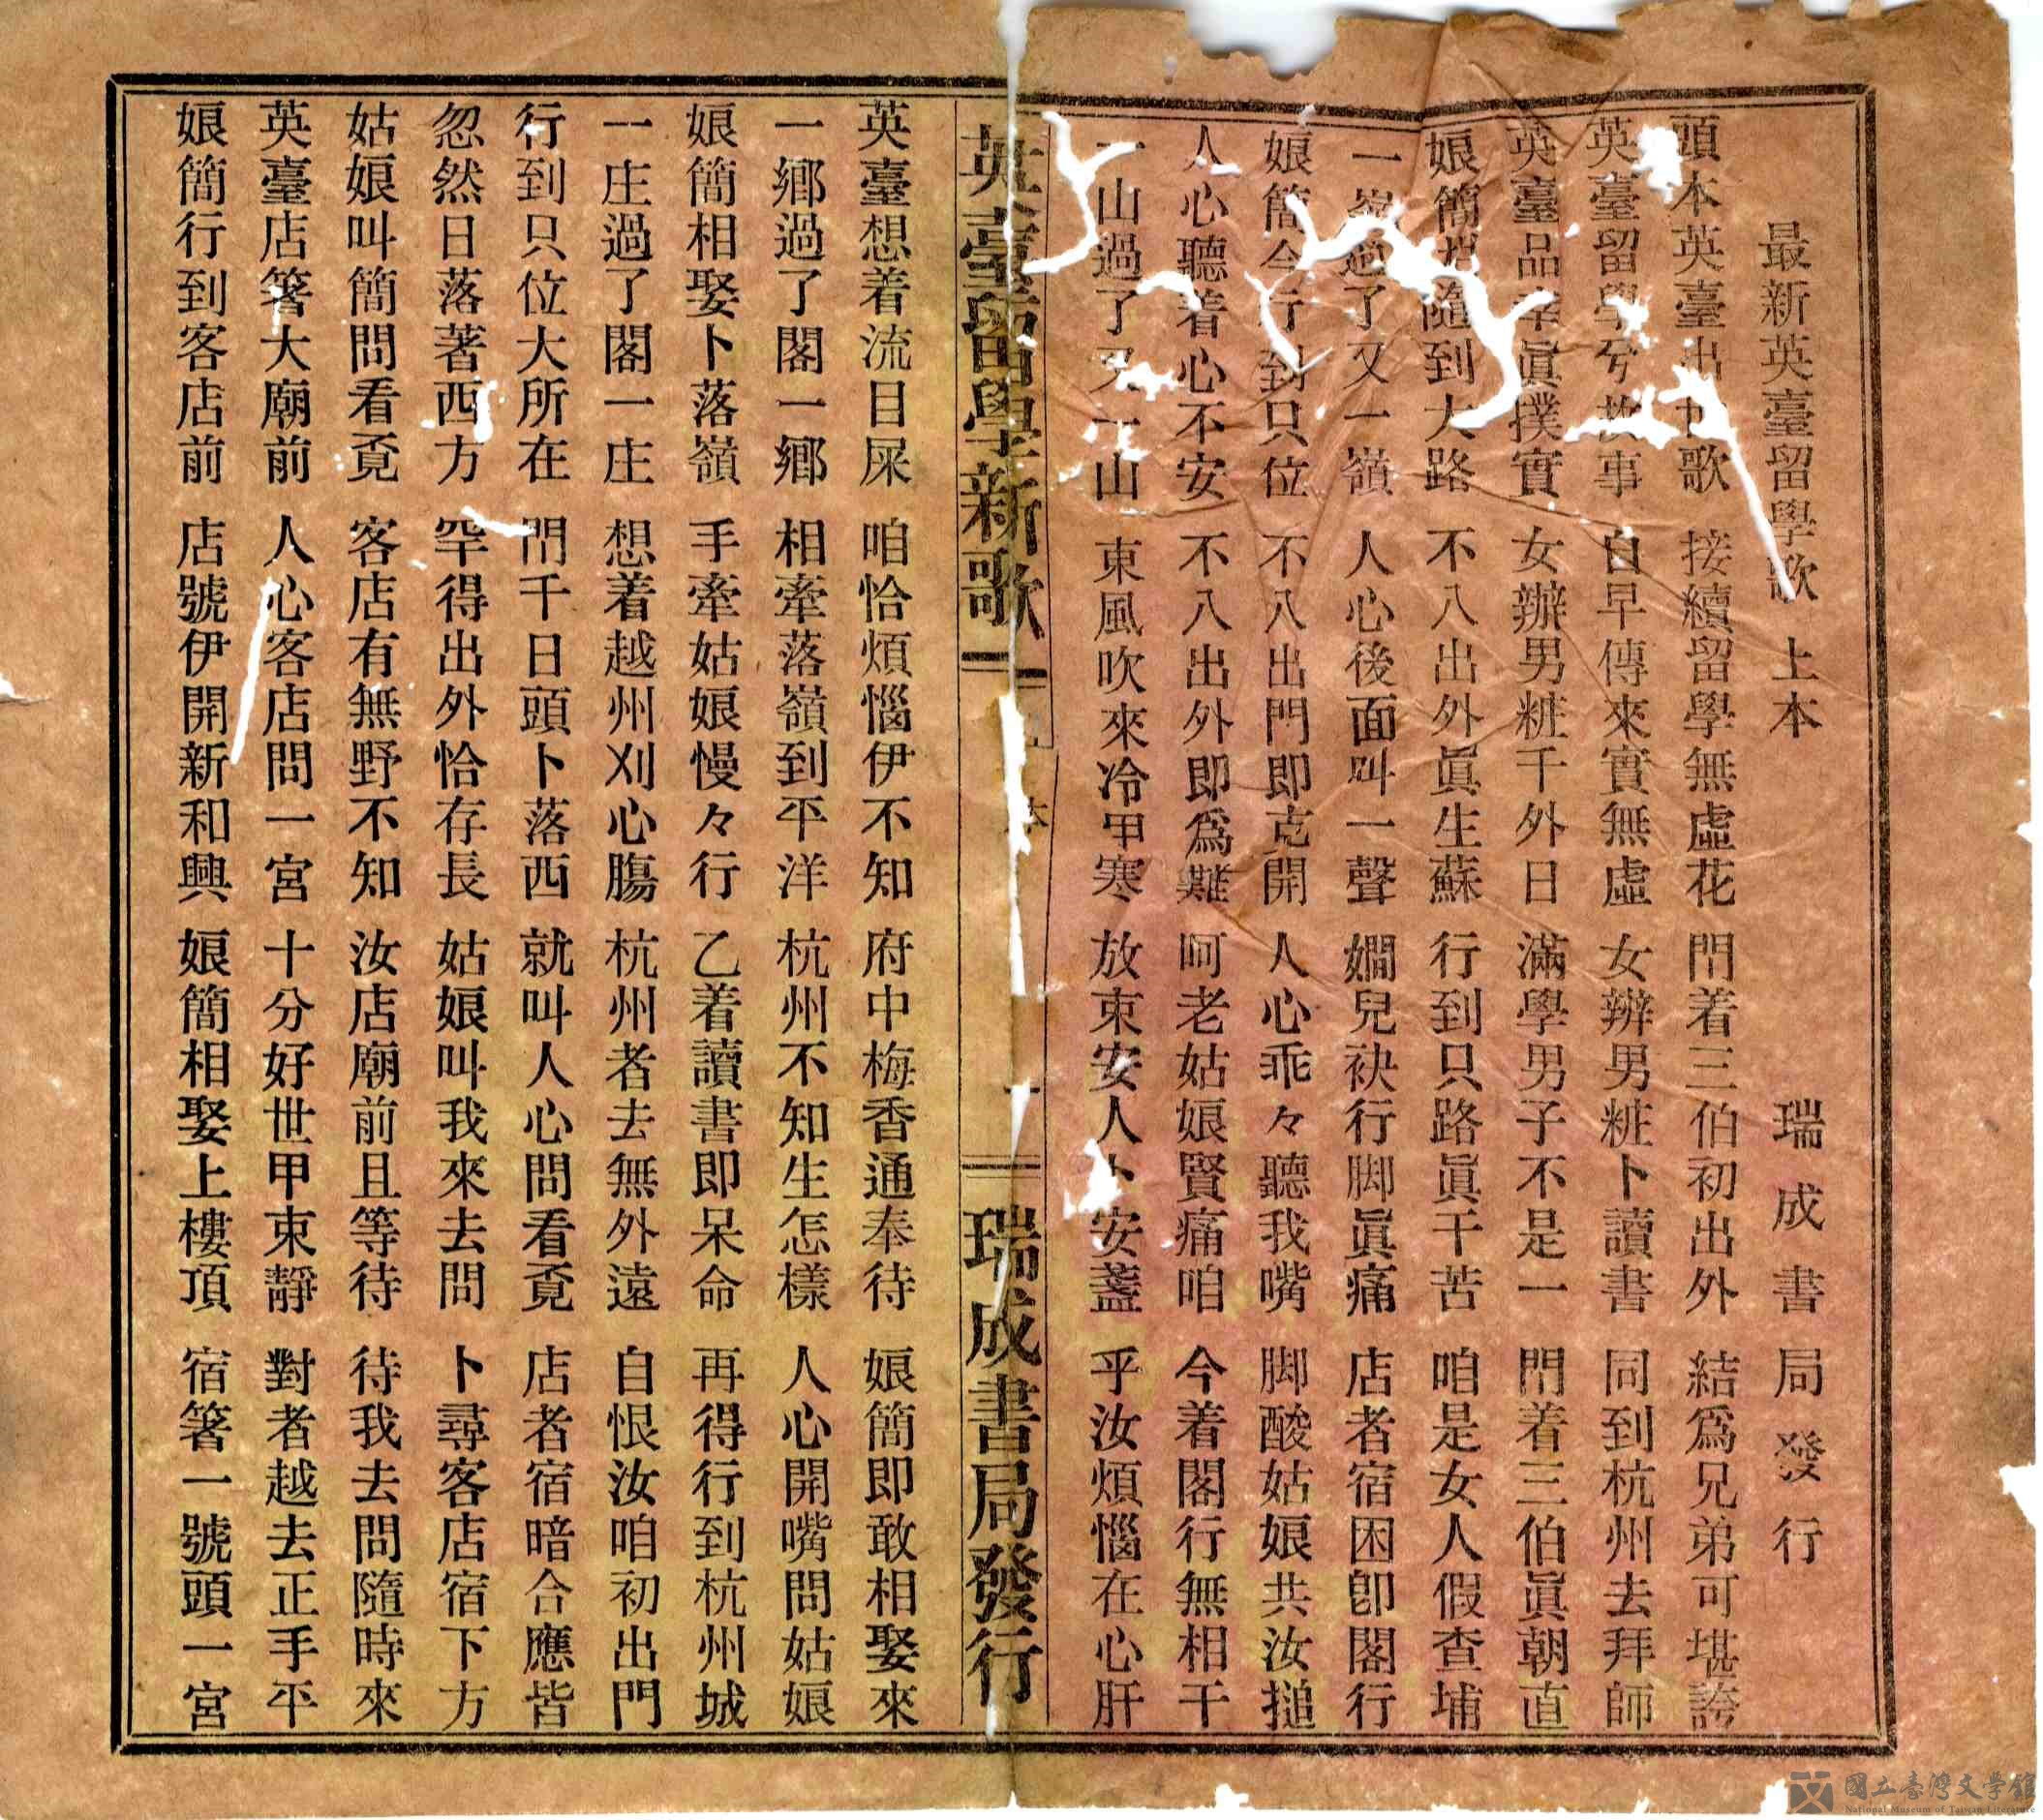 最新英臺留學歌 上本 瑞成書局發行
頭本英臺出歌 接續留學無虛花 門着三伯初出外 結爲兄弟可堪誇
英臺留學兮故事 自早傳來實無虛 女辦男粧卜讀書 同到杭州去拜師
英臺品幸眞撲實 女辦男粧千外日 滿學男子不是一 門着三伯眞朝直
娘簡隨到大路 不八出外眞生蘇 行到只路眞干苦 咱是女人假查埔
一嶺過了又一嶺 人心後面叫一聲 嫺兒袂行脚眞痛 店者宿困卽閣行
娘簡今行到只位 不八出門即克開 人心乖々聽我嘴 脚酸姑娘共汝搥
人心聽着心不安 不八出外即爲難 呵老姑娘賢痛咱 今着閣行無相干
一山過了又一山 東風吹來冷甲寒 放束安人卜安盞 乎汝煩惱在心肝
英臺留學新歌 本 一 瑞成書局發行
英臺想着流目屎 咱恰煩惱伊不知 府中梅香通奉待 娘簡即敢相娶來
一鄉過了閣一鄉 相牽落嶺到平洋 杭州不知生怎樣 人心開嘴問姑娘
娘簡相娶卜落嶺 手牽姑娘慢々行 乙着讀書即呆命 再得行到杭州城
一庄過了閣一庄 想着越州刈心膓 杭州者去無外遠 自恨汝咱初出門
行到只位大所在 門千日頭卜落西 就叫人心問看覔 店者宿暗合應皆
忽然日落著西方 罕得出外恰存長 姑娘叫我來去問 卜尋客店宿下方
姑娘叫簡問看覔 客店有無野不知 汝店廟前且等待 待我去問隨時來
英臺店箸大廟前 人心客店問一宮 十分好世甲束靜 對者越去正手平
娘簡行到客店前 店號伊開新和興 娘簡相娶上樓頂 宿箸一號頭一宮
國立臺灣文學館
National Museum of Taiwan Literature